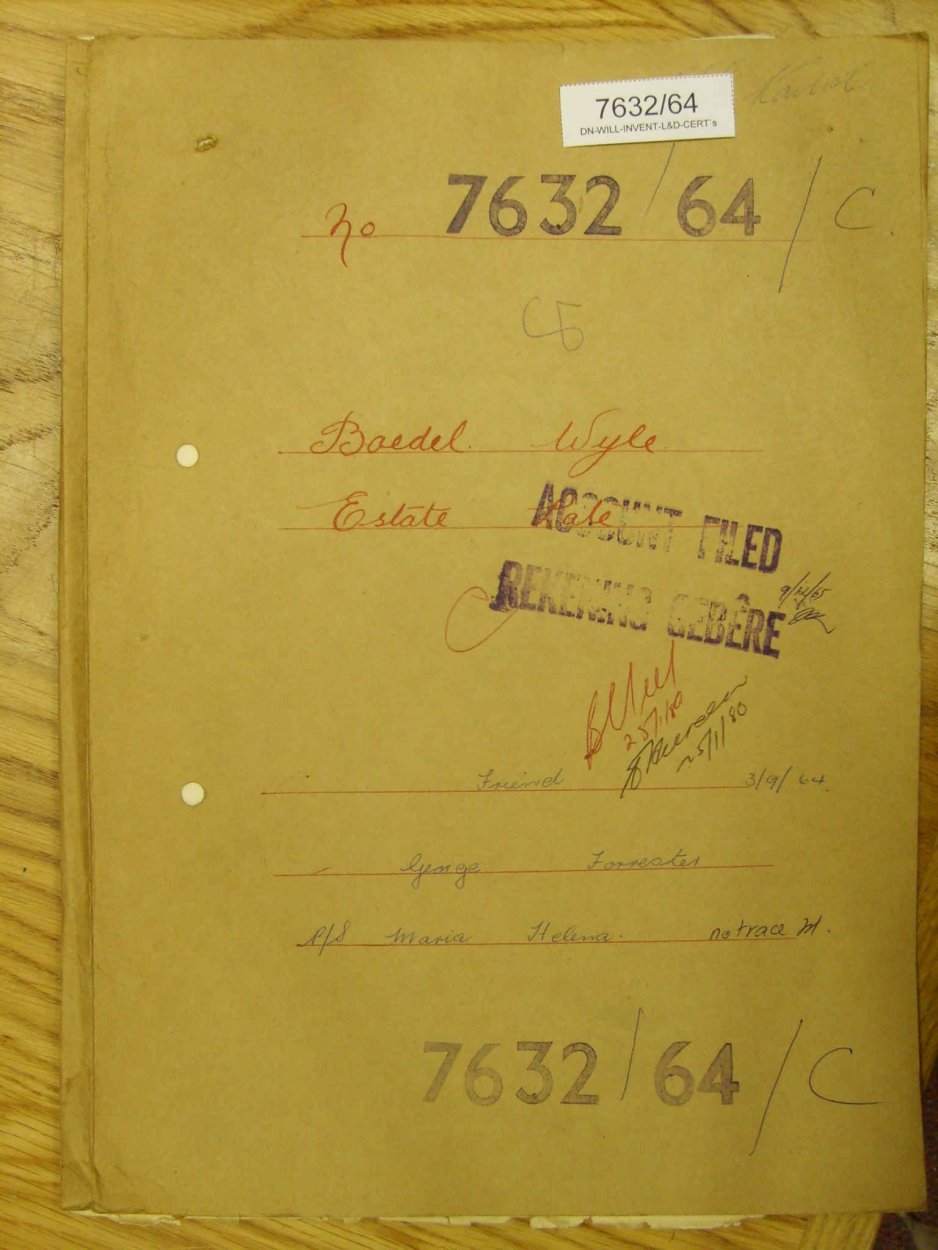 7632/64
DN-WILL-INVENT-L&D-CERT's
No 7632/64/C.
Boedel Wyle
Estate Late
ACCOUNT FILED
REKENING GEBÊRE
9/12/65
25/1/80
25/1/80
Friend 3/9/64.
George Forrester
P/S Maria Helena. no trace M.
7632/64/C